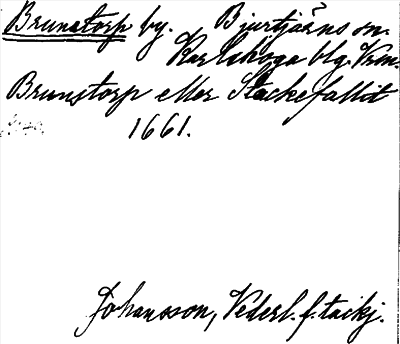 Brunstorp by. Bjurtjärns sn.
Karlskoga blg. Vrm.
Brunstorp eller Stackefallit
1661.
Johansson, Vederl. f. taikj.